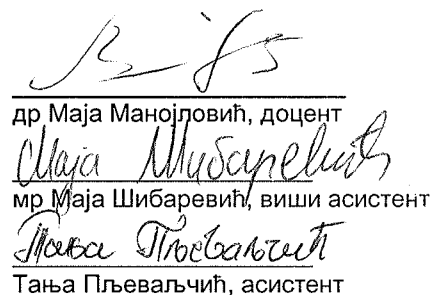 др Маја Манојловић, доцент
Маја Шибаревић
мр Маја Шибаревић, виши асистент
Тања Пљеваљчић
Тања Пљеваљчић, асистент